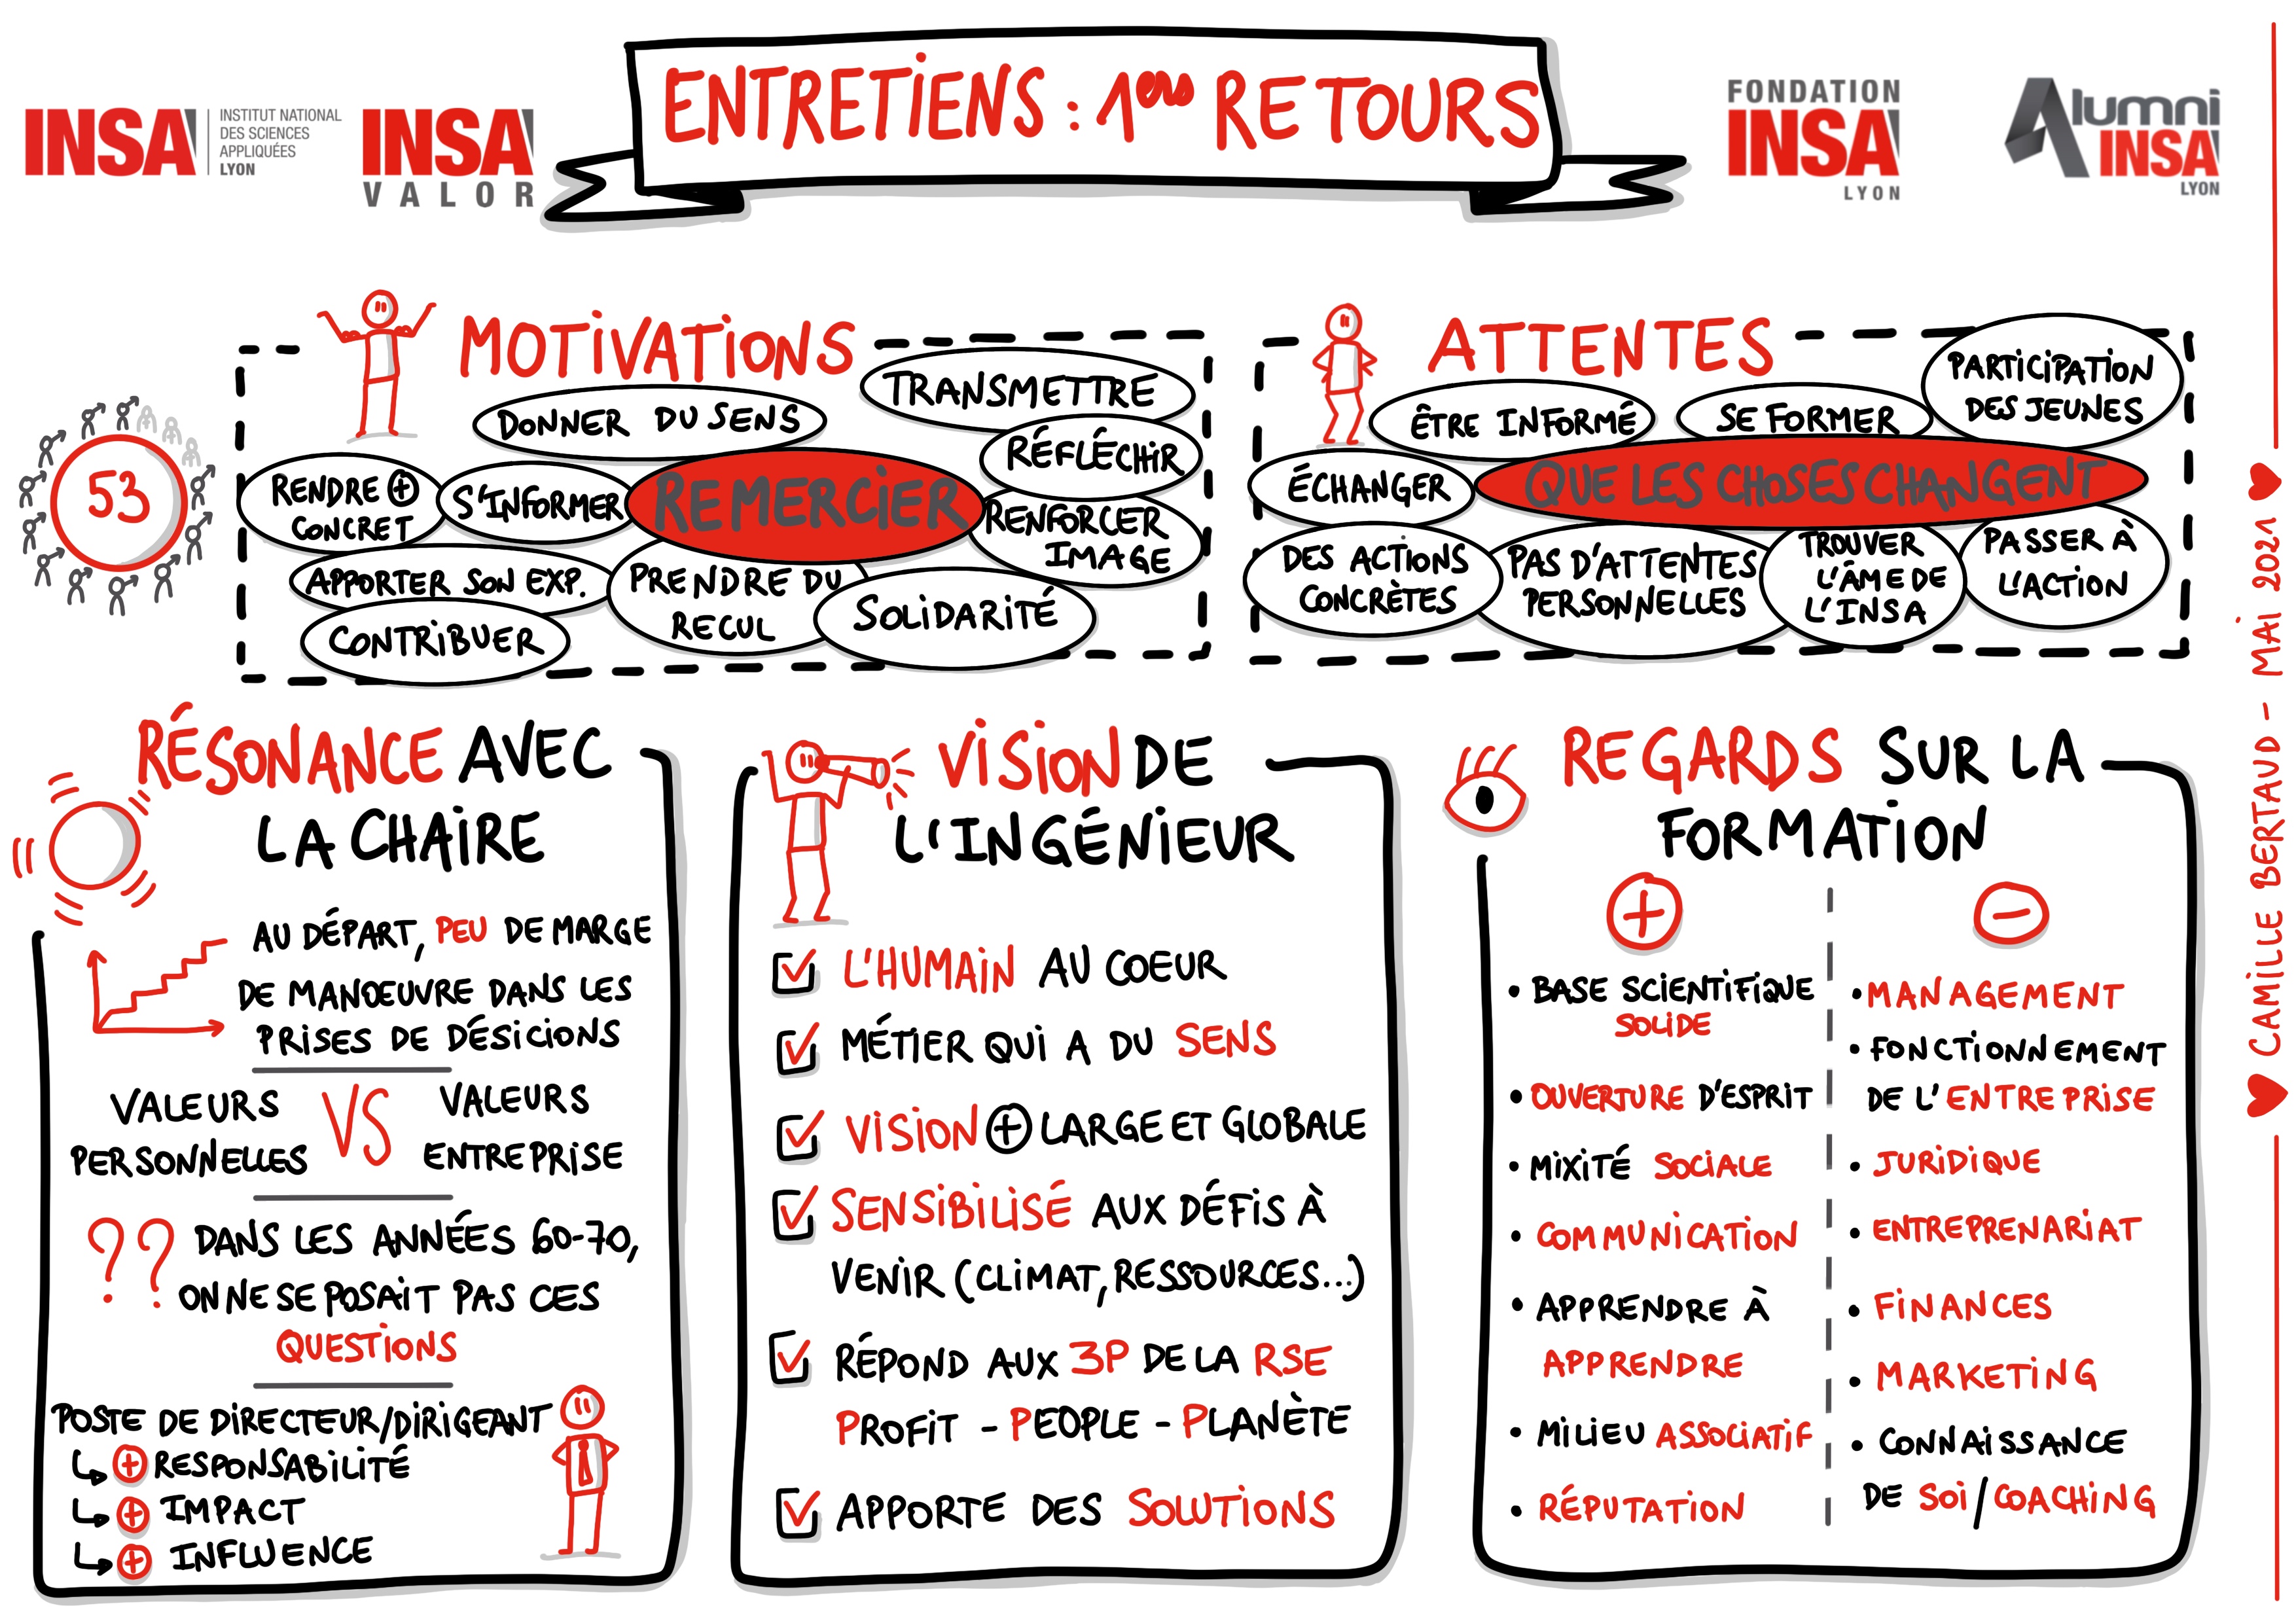 ENTRETIENS : 1ers RETOURS
INSA
INSTITUT NATIONAL
DES SCIENCES
APPLIQUÉES
LYON
INSA
VALOR
FONDATION
INSA
LYON
Alumni
INSA
LYON
53
MOTIVATIONS
DONNER DU SENS
TRANSMETTRE
RÉFLÉCHIR
RENDRE +
CONCRET
S'INFORMER
REMERCIER
RENFORCER
IMAGE
APPORTER SON EXP.
PRENDRE DU
RECUL
SOLIDARITÉ
CONTRIBUER
ATTENTES
ÊTRE INFORMÉ
SE FORMER
PARTICIPATION
DES JEUNES
ÉCHANGER
QUE LES CHOSES CHANGENT
DES ACTIONS
CONCRÈTES
PAS D'ATTENTES
PERSONNELLES
TROUVER
L'ÂME DE
L'INSA
PASSER À
L'ACTION
RÉSONANCE AVEC
LA CHAIRE
AU DÉPART, PEU DE MARGE
DE MANOEUVRE DANS LES
PRISES DE DÉSICIONS
VALEURS
PERSONNELLES
VS
VALEURS
ENTREPRISE
?? DANS LES ANNÉES 60-70,
ON NE SE POSAIT PAS CES
QUESTIONS
POSTE DE DIRECTEUR/DIRIGEANT
↳ + RESPONSABILITÉ
↳ + IMPACT
↳ + INFLUENCE
VISION DE
L'INGÉNIEUR
L'HUMAIN AU COEUR
MÉTIER QUI A DU SENS
VISION + LARGE ET GLOBALE
SENSIBILISÉ AUX DÉFIS À
VENIR (CLIMAT, RESSOURCES...)
RÉPOND AUX 3P DE LA RSE
PROFIT - PEOPLE - PLANÈTE
APPORTE DES SOLUTIONS
REGARDS SUR LA
FORMATION
+
• BASE SCIENTIFIQUE
SOLIDE
• OUVERTURE D'ESPRIT
• MIXITÉ SOCIALE
• COMMUNICATION
• APPRENDRE À
APPRENDRE
• MILIEU ASSOCIATIF
• RÉPUTATION
-
• MANAGEMENT
• FONCTIONNEMENT
DE L'ENTREPRISE
• JURIDIQUE
• ENTREPRENARIAT
• FINANCES
• MARKETING
• CONNAISSANCE
DE SOI/COACHING
CAMILLE BERTAUD - MAI 2021